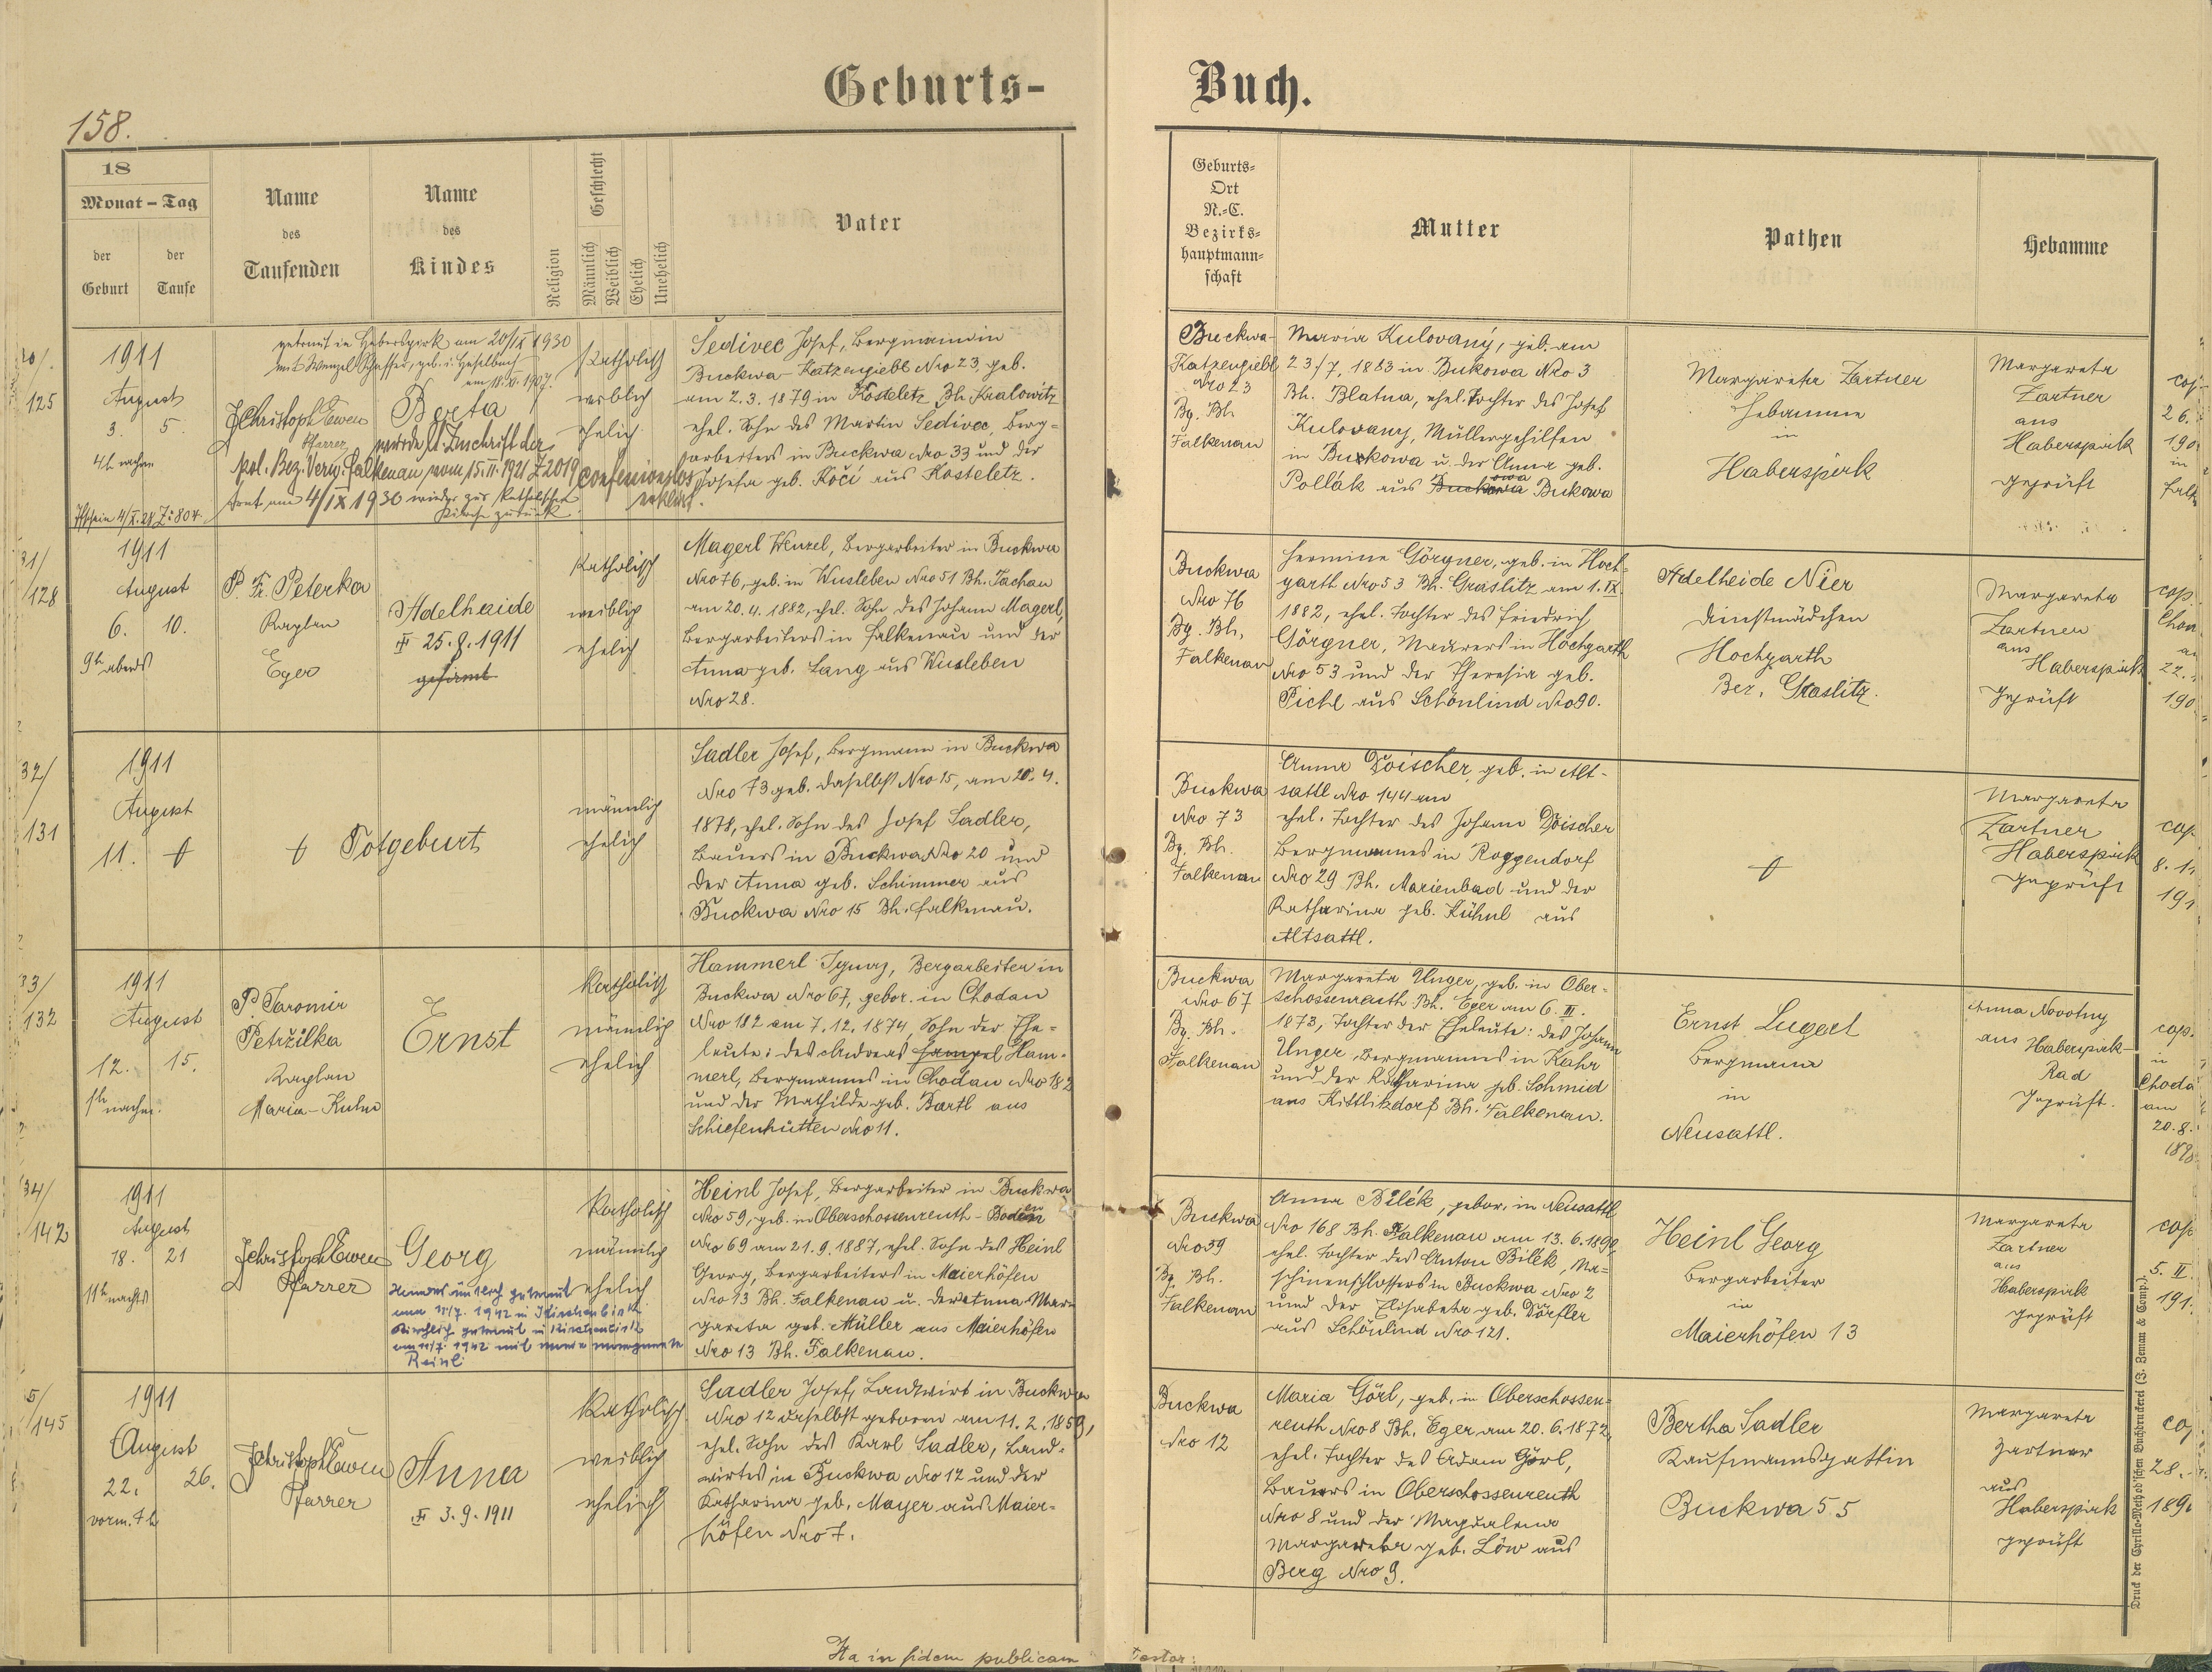 Geburts-
Buch.
158.
18
Monat – Tag
der Geburt
der Taufe
Name
des
Taufenden
Name
des
Kindes
Religion
Geschlecht
Männlich
Weiblich
Ehelich
Unehelich
Vater
Geburts-
Ort
N.-C.
Bezirks-
hauptmann-
schaft
Mutter
Pathen
Hebamme
125
1911
August
3. 5.
4h nachm
getraut in Haberspirk am 20/IX 1930
mit Wenzel Schaffer, geb. i. Haselbach
am 18.XI.1907.
Pfarrer
Berta
wurde lt. Zuschrift der
pol. Bez. Verw. Falkenau vom 15.II.1921 Z 2019 confessionslos
erklärt.
trat am 4/IX 1930 wieder zur kathol.
Kirche zurück
Katholisch
weiblich
ehelich
Sedivec Josef, Bergmann in
Buckwa-Katzengiebl Nro 23, geb.
am 2.3.1879 in Kosteletz Bh. Kralowitz
ehel. Sohn des Martin Sedivec, Berg=
arbeiters in Buckwa Nro 33 und der
Josefa geb. Kočí aus Kosteletz.
Buckwa-
Katzengiebl
Nro 23
Bg. Bh.
Falkenau
Maria Kulovaný, geb. am
23/7, 1883 in Bukowa Nro 3
Bh. Blatna, ehel. Tochter des Josef
Kulovany, Müllergehilfen
in Bukowa u. der Anna geb.
Pollák aus Buckowa Bukowa
Margareta Zartner
Hebamme
in
Haberspirk
Margareta
Zartner
aus
Haberspirk
geprüft
26.
190
in
31/
128
1911
August
6. 10.
9h abends
P. Fr. Peterka
Kaplan
Eger
Adelheide
25.8.1911
gefirmt
Katholisch
weiblich
ehelich
Magerl Wenzel, Bergarbeiter in Buckwa
Nro 76, geb. in Wusleben Nro 51 Bh. Tachau
am 20.4.1882, ehel. Sohn des Johann Magerl,
Bergarbeiters in Falkenau und der
Anna geb. Lang aus Wusleben
Nro 28.
Buckwa
Nro 76
Bg. Bh,
Falkenau
Hermine Görgner, geb. in Hoch=
garth Nro 53 Bh. Graslitz am 1. IX.
1882, ehel. Tochter des Friedrich
Görgner, Maurers in Hochgarth
Nro 53 und der Theresia geb.
Pichl aus Schönlind Nro 90.
Adelheide Nier
Dienstmädchen
Hochgarth
Bez. Graslitz.
Margareta
Zartner
aus
Haberspirk
geprüft
cop.
22.
190
32/
131
1911
August
11. †
† Totgeburt
männlich
ehelich
Sadler Josef, Bergmann in Buckwa
Nro 73 geb. daselbst Nro 15, am 20. 4.
1878, ehel. Sohn des Josef Sadler,
Bauers in Buckwa Nro 20 und
der Anna geb. Schimmer aus
Buckwa Nro 15 Bh. Falkenau.
Buckwa
Nro 73
Bg. Bh.
Falkenau
Anna Doischer, geb. in Alt-
sattl Nro 144 am
ehel. Tochter des Johann Doischer
Bergmannes in Roggendorf
Nro 29 Bh. Marienbad und der
Katharina geb. Kühnl aus
Altsattl.
†
Margareta
Zartner
Haberspirk
geprüft
cop
8.1
191
33/
132
1911
August
12. 15.
1h nachm.
P. Jaromir
Petržilka
Kaplan
Maria-Kulm
Ernst
Katholisch
männlich
ehelich
Hammerl Ignaz, Bergarbeiter in
Buckwa Nro 67, gebor. in Chodau
Nro 182 am 7.12.1874, Sohn der Ehe=
leute: des Andreas Hampel Ham=
merl, Bergmannes in Chodau Nro 182
und der Mathilde geb. Bartl aus
Schiefenhütten Nro 11.
Buckwa
Nro 67
Bg. Bh.
Falkenau
Margareta Unger, geb. in Ober=
schossenreuth Bh. Eger am 6. III.
1873, Tochter der Eheleute: des Johann
Unger, Bergmannes in Kahr
und der Katharina geb. Schmid
aus Kittlitzdorf Bh. Falkenau.
Ernst Lugert
Bergmann
in
Neusattl.
Anna Novotny
aus Haberspirk-
Rad
geprüft.
cop.
in
Choda
am
20.8.
1898
34/
142
1911
August
18. 21
11h nachts
Pfarrer
Georg
am 11/7. 1942 in
kirchlich getraut in
am 11/7. 1942 mit
Reinl
Katholisch
männlich
ehelich
Heinl Josef, Bergarbeiter in Buckwa
Nro 59, geb. in Oberschossenreuth-Boden
Nro 69 am 21.9.1887, ehel. Sohn des Heinl
Georg, Bergarbeiters in Maierhöfen
Nro 13 Bh. Falkenau u. der Anna Mar=
gareta geb. Müller aus Maierhöfen
Nro 13 Bh. Falkenau.
Buckwa
Nro 59
Bg. Bh.
Falkenau
Anna Bilék, gebor. in Neusattl
Nro 168 Bh. Falkenau am 13.6.1892
ehel. Tochter des Anton Bilek, Ma=
schinenschlossers in Buckwa Nro 2
und der Elisabeta geb. Dörfler
aus Schönlind Nro 121.
Heinl Georg
Bergarbeiter
in
Maierhöfen 13
Margareta
Zartner
aus
Haberspirk
geprüft
cop
5. II
191.
5/
145
1911
August
22. 26.
vorm. 7h
Pfarrer
Anna
3.9.1911
Katholisch
weiblich
ehelich
Sadler Josef, Landwirt in Buckwa
Nro 12 daselbst geboren am 11.2.1859,
ehel. Sohn des Karl Sadler, Land=
wirtes in Buckwa Nro 12 und der
Katharina geb. Mayer aus Maier=
höfen Nro 7.
Buckwa
Nro 12
Maria Görl, geb. in Oberschossen=
reuth Nro 8 Bh. Eger am 20.6.1872,
ehel. Tochter des Adam Görl,
Bauers in Oberschossenreuth
Nro 8 und der Magdalena
Margareta geb. Löw aus
Berg Nro 9.
Bertha Sadler
Kaufmannsgattin
Buckwa 55
Margareta
Zartner
aus
Haberspirk
geprüft
28.
189
Druck der Cyrillo-Method'schen Buchdruckerei (J. Zeman & Comp.)
Ita in fidem publicam
Testor: